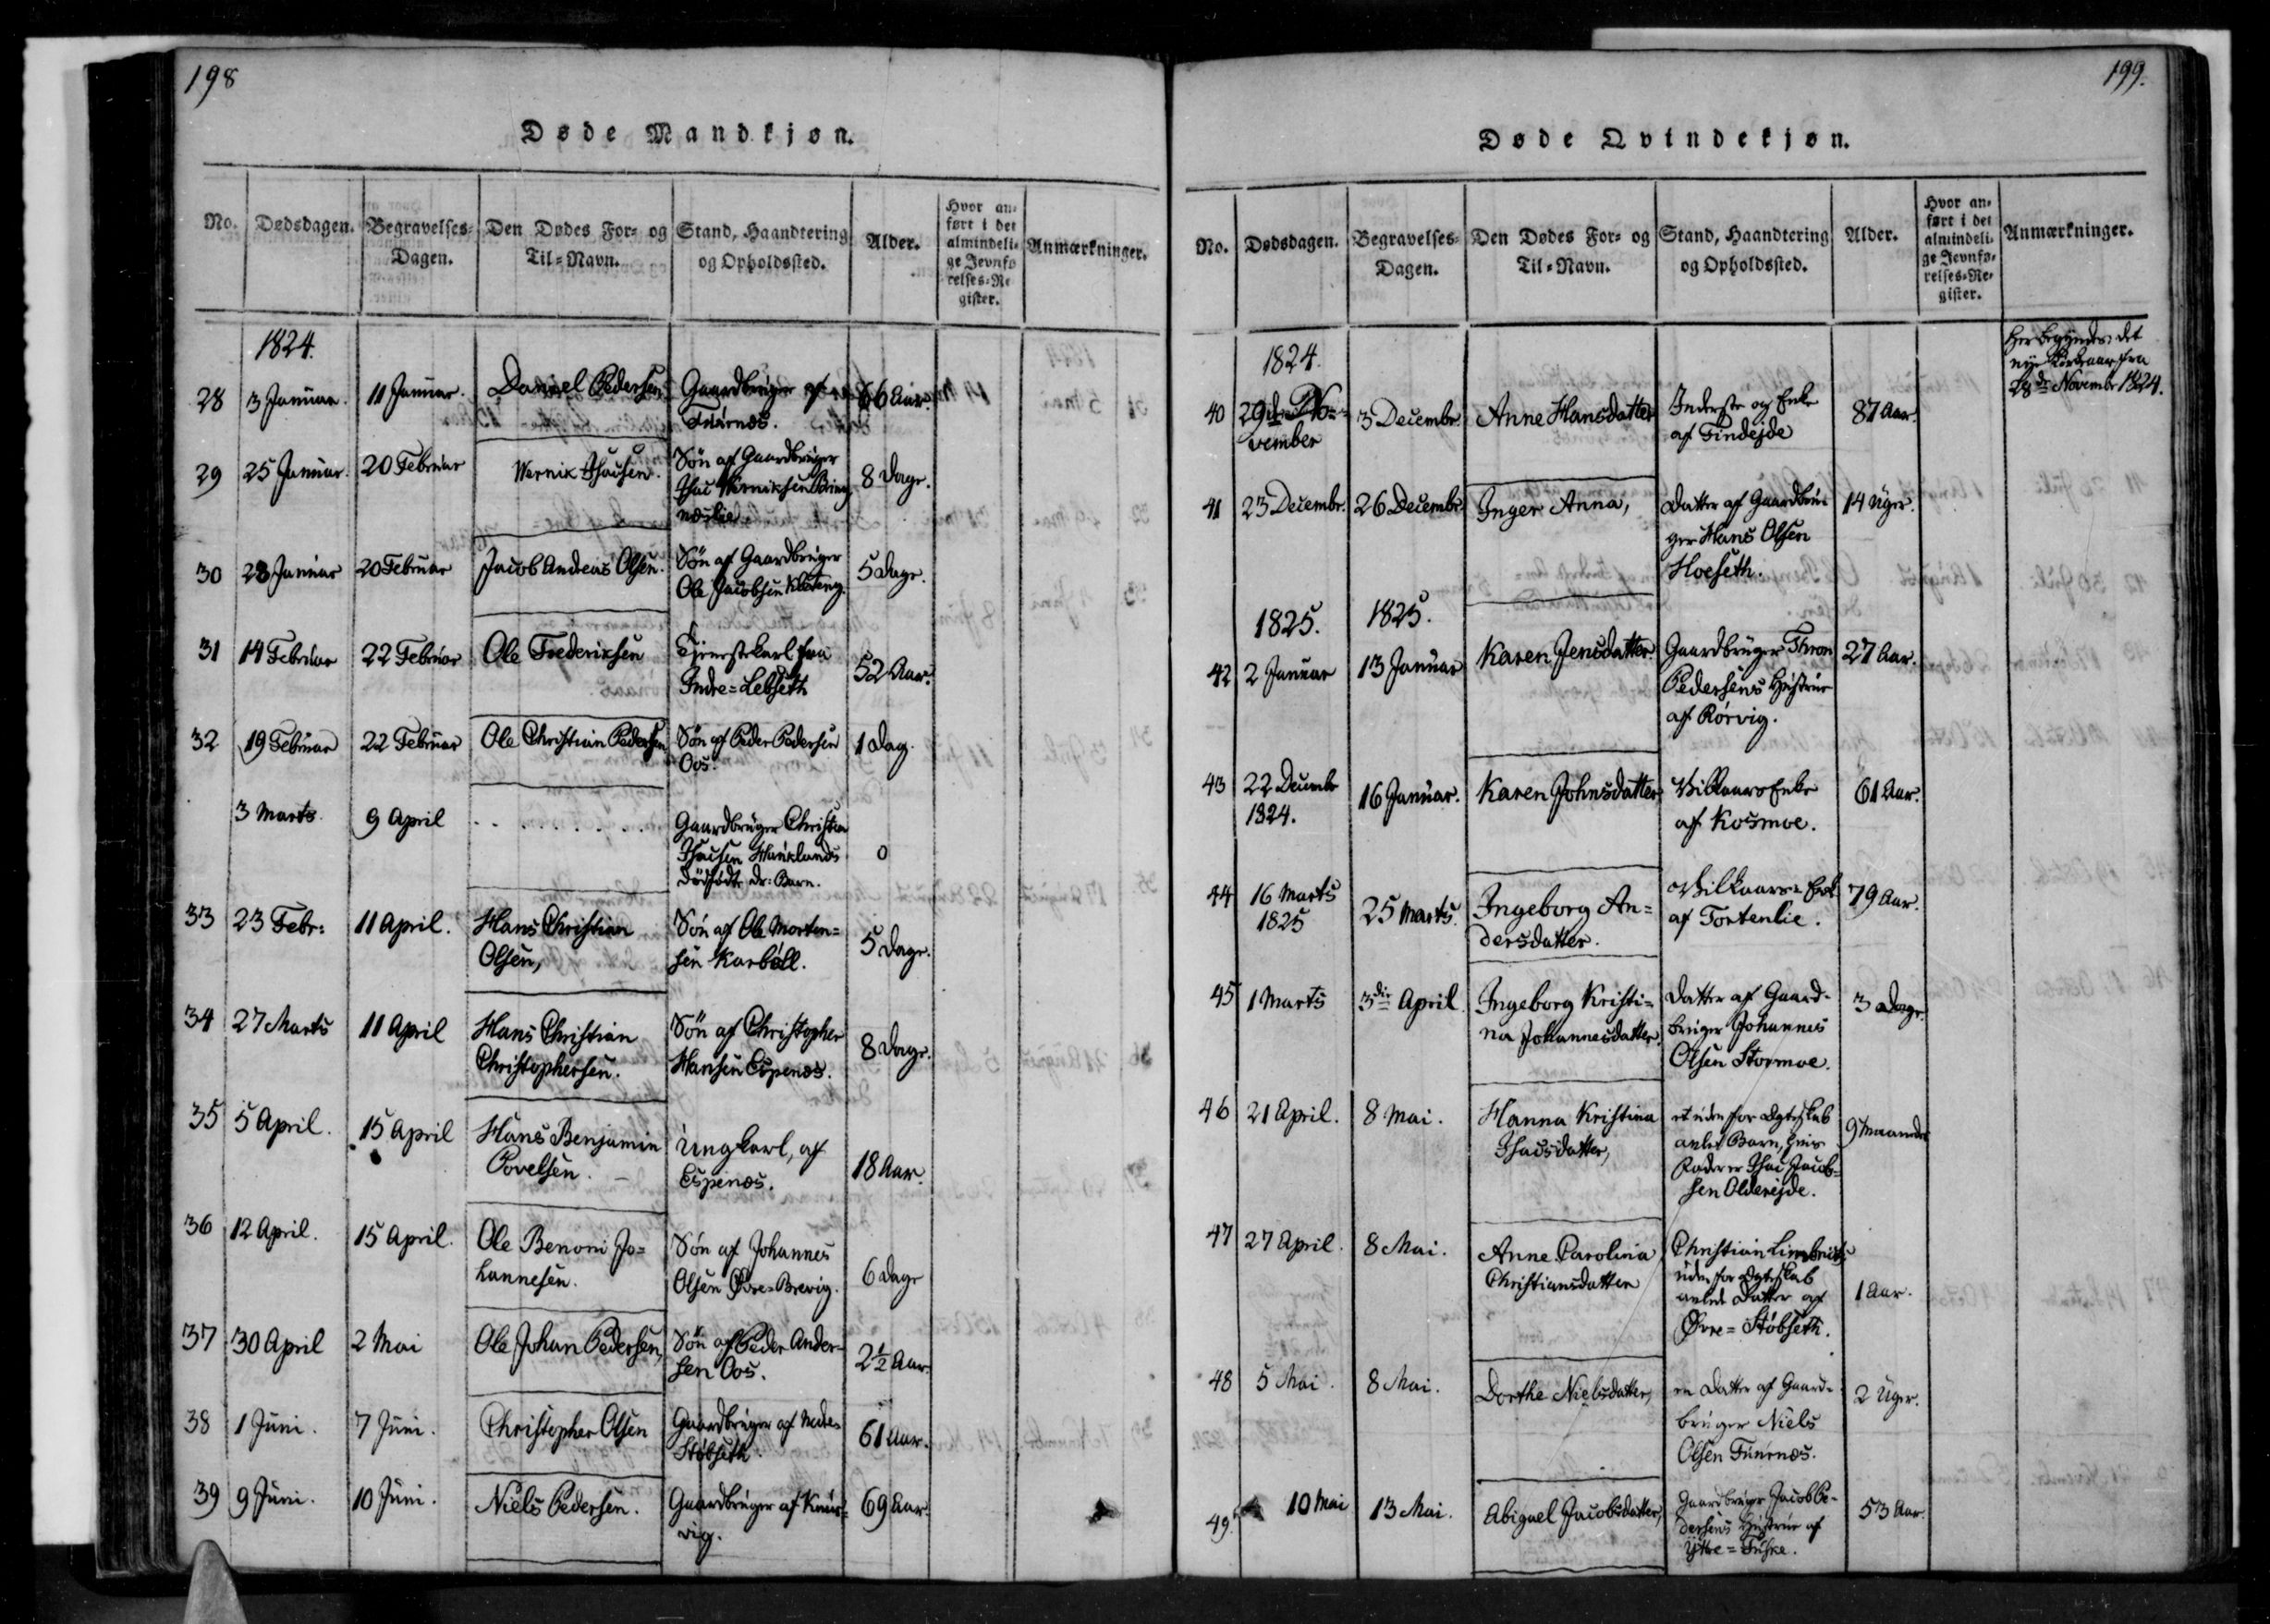 198
Døde Mandkjøn.
No.
Dødsdagen.
Begravelses-
Dagen.
Den Dødes For- og
Til-Navn.
Stand, Haandtering
og Opholdssted.
Alder.
Hvor an-
ført i det
almindeli-
ge Jevnfø
relses-Re
gister.
Anmærkninger.
1824.
28 3 Januar. 11 Januar. Daniel Pedersen Gaardbruger af 66 Aar.
29 25 Januar. 20 Februar Wernik Isacsen. Søn af Gaardbruger 8 Dage.
Isac Werniksen
30 28 Januar 20 Februar Jacob Andreas Olsen. Søn af Gaardbruger 5 Dage.
Ole Jacobsen Kleteng.
31 14 Februar 22 Februar Ole Frederiksen Tjenestekarl fra 52 Aar.
Indre=Lebseth
32 19 Februar 22 Februar Ole Christian Pedersen Søn af Peder Pedersen 1 Dag.
Oos.
3 Marts. 9 April . . . . . . . . . Gaardbruger Christian
Isacsen Hauklands 0
dødfødte Dr: Barn.
33 23 Febr: 11 April. Hans Christian Søn af Ole Morten= 5 Dage.
Olsen, sen Karbøll.
34 27 Marts 11 April Hans Christian Søn af Christopher 8 Dage.
Christophersen. Hansen Espenæs.
35 5 April. 15 April Hans Benjamin Ungkarl, af 18 Aar.
Povelsen. Espenæs.
36 12 April. 15 April. Ole Benoni Jo= Søn af Johannes 6 Dage
hannesen. Olsen Øvre=Brevig.
37 30 April 2 Mai Ole Johan Pedersen, Søn af Peder Ander- 2½ Aar.
sen Oos.
38 1 Juni. 7 Juni. Christopher Olsen Gaardbruger af Nedre= 61 Aar.
Støbseth.
39 9 Juni. 10 Juni. Niels Pedersen. Gaardbruger af 69 Aar.
vig.
199.
Døde Qvindekjøn.
No.
Dødsdagen.
Begravelses-
Dagen.
Den Dødes For- og
Til-Navn.
Stand, Haandtering
og Opholdssted.
Alder.
Hvor an-
ført i det
almindeli-
ge Jevnfø-
relses-Re-
gister.
Anmærkninger.
Her begyndes det
nye Kirkeaar fra
28de Novembr 1824.
1824.
40 29de No= 3 Decembr. Anne Hansdatter Inderste og Enke 87 Aar.
vember af Findejde
41 23 Decembr. 26 Decembr. Inger Anna, Datter af Gaardbru- 14 Uger.
ger Hans Olsen
Hoeseth.
1825. 1825.
42 2 Januar 13 Januar Karen Jensdatter. Gaardbruger Thron 27 Aar.
Pedersens Hustrue
af Rørvig.
43 22 Decembr 16 Januar. Karen Johnsdatter Vilkaars Enke 61 Aar.
1824. af Kosmoe.
44 16 Marts 25 Marts. Ingeborg An= Vilkaars= Enke 79 Aar.
1825 dersdatter. af Tortenlie.
45 1 Marts 3die April. Ingeborg Kristi= Datter af Gaard- 3 Dage.
na Johannesdatter. bruger Johannes
Olsen Stormoe.
46 21 April. 8 Mai. Hanna Kristina et uden for Ægteskab 9 Maaneder
Isacsdatter, avlet Barn, hvis
Fader er Isac Jacob=
sen Olderejde.
47 27 April. 8 Mai. Anne Carolina Christian
Christiansdatter uden for Ægteskab
avlede Datter af 1 Aar.
Øvre=Støbseth.
48 5 Mai. 8 Mai. Dorthe Nielsdatter, en Datter af Gaard= 2 Uger.
bruger Niels
Olsen
49. 10 Mai 13 Mai. Abigael Jacobsdatter, Gaardbruger Jacob Pe- 53 Aar.
dersens Hustrue af
Yttre=Fuske.